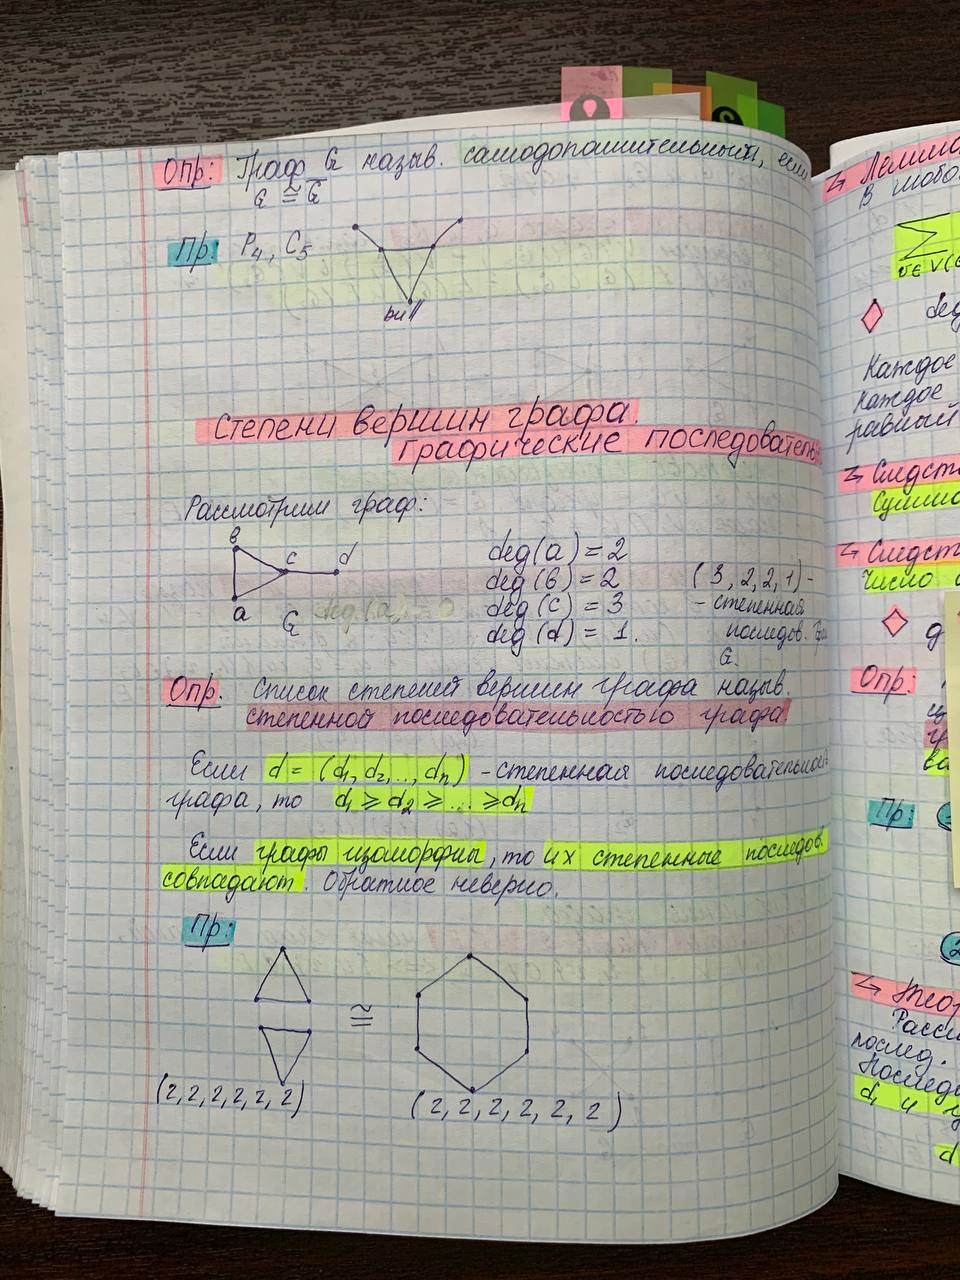 Опр: Граф G назыв. самодополнительный, если
G ≅ G̅
Пр: P₄, C₅
bull
Степени вершин графа.
Графические последователь
Рассмотрим граф:
в
c
d
a
G
deg(a) = 2
deg(в) = 2
deg(c) = 3
deg(d) = 1.
(3, 2, 2, 1) -
- степенная
последов.
G.
Опр. Список степеней вершин графа назыв.
степенной последовательностью графа.
Если d = (d₁, d₂, .., dₙ) - степенная последовательност
графа, то d₁ ⩾ d₂ ⩾ ... ⩾ dₙ
Если графы изоморфны, то их степенные последов.
совпадают. Обратное неверно.
Пр:
≅
(2,2,2,2,2,2)
(2, 2, 2, 2, 2, 2)
Лемма
В любо
Σ
v∈V(G
deg
Каждое
Каждое
равный
Следст
Сумма
Следст
Число
Опр:
Пр:
2
Теор
Расс
послед.
Последо
d, и
d